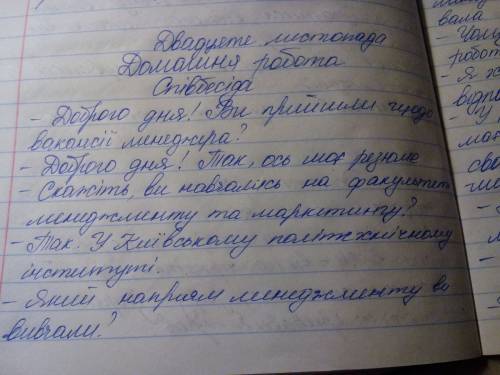 Двадцяте листопада
Домашня робота
Співбесіда
- Доброго дня! Ви прийшли щодо
вакансії менеджера?
- Доброго дня! Так, ось моє резюме
- Скажіть, ви навчались на факультеті
менеджменту та маркетингу?
- Так. У Київському політехнічному
інституті.
- Який напрям менеджменту ви
вивчали?
вала
робот
- Я
відпо